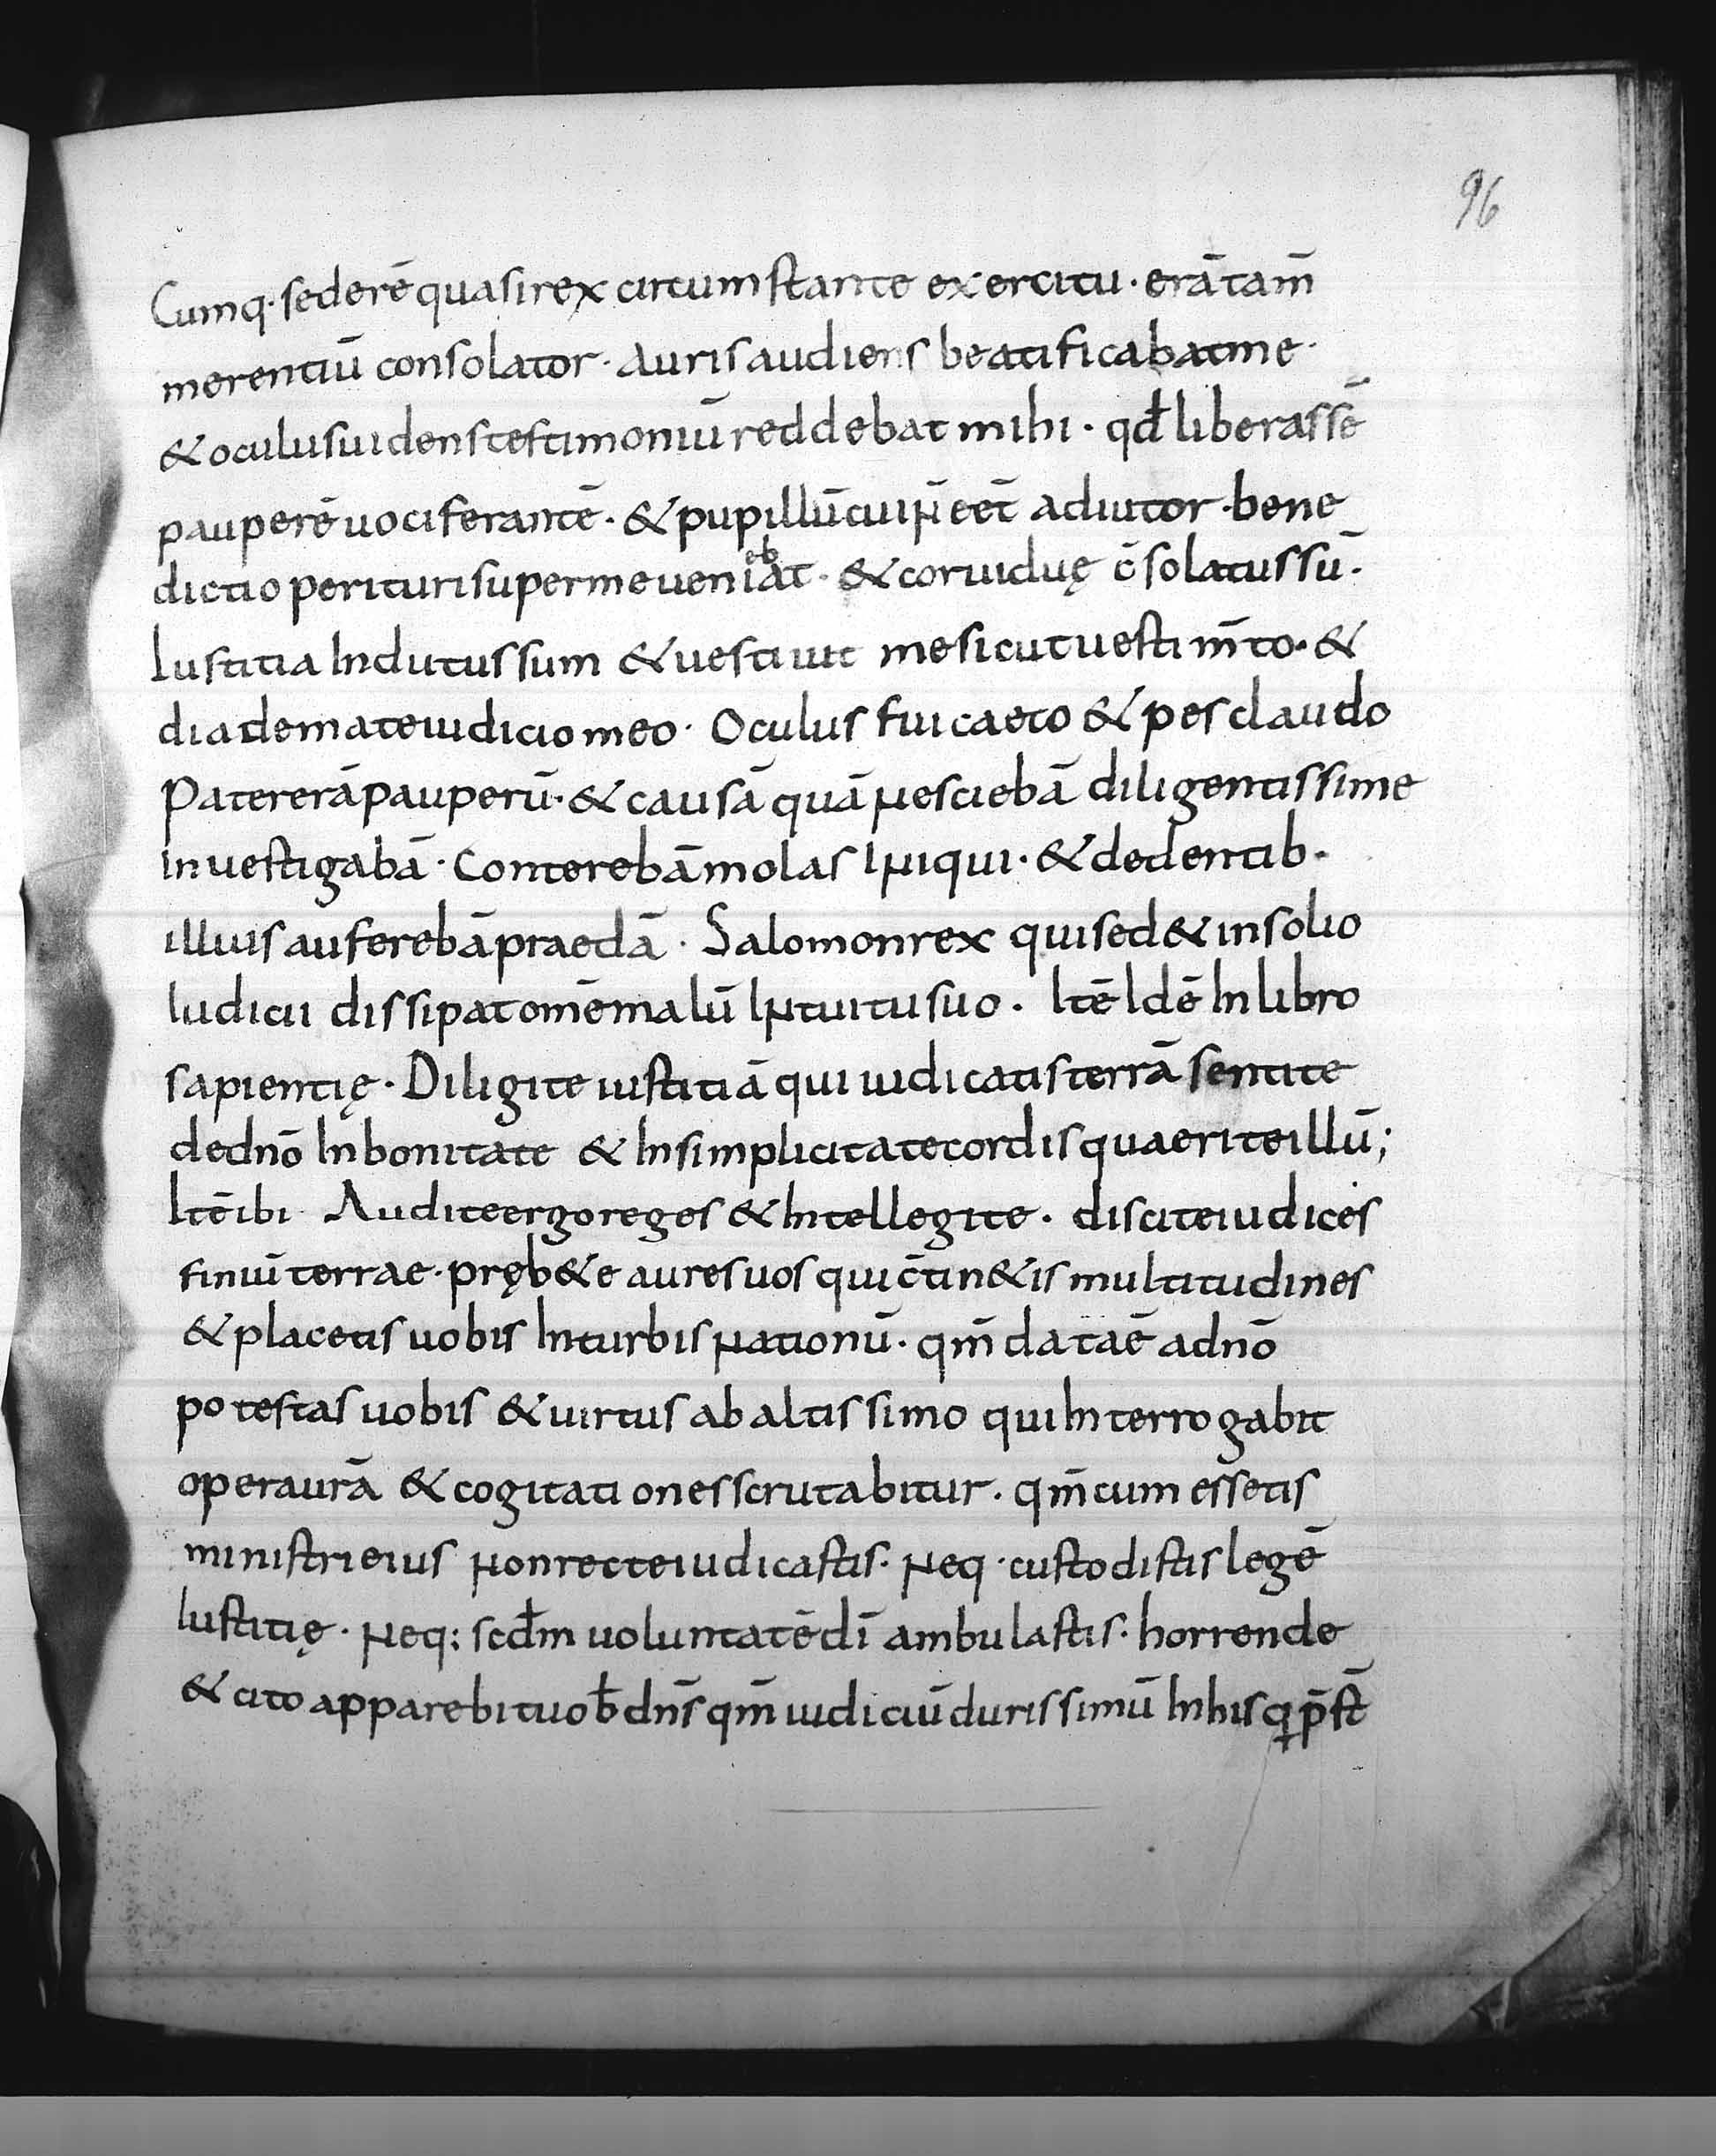 96
Cumq· sederē quasi rex circumstante exercitu · erā tam̄
merentiū consolator · Auris audiens beatificabat me ·
& oculus uidens testimoniū reddebat mihi · qđ liberassē
pauperē uociferantē · & pupillū cui ñ eēt adiutor · bene
eb
dictio perituri super me ueniat · & cor uiduę c̄solatus sū ·
Iustitia Indutus sum & uestiuit me sicut uestim̄to · &
diademate iudicio meo · Oculus fui caeco & pes claudo
Pater erā pauperū · & causā quā nesciebā diligentissime
inuestigabā · Conterebā molas Iniqui · & dedentib·
illius auferebā praedā · Salomon rex qui sed& in solio
Iudicii dissipat om̄e malū Intuitu suo · Itē Idē In libro
sapientię · Diligite iustitiā qui iudicatis terrā sentite
de dn̄o In bonitate & In simplicitate cordis quaerite illū ;
Itē ibi Audite ergo reges & Intellegite · discite iudices
finiū terrae · pręb&e aures uos qui c̄tin&is multitudines
& placetis uobis In turbis nationū · qm̄ data ē a dn̄o
potestas uobis & uirtus ab altissimo qui Interrogabit
opera ur̄a & cogitationes scrutabitur · qm̄ cum essetis
ministri eius non recte iudicastis · neq· custodistis legē
Iustitię · neq: scđm uoluntatē dī ambulastis · horrende
& cito apparebit uob̄ dn̄s qm̄ iudiciū durissimū In his q̣ p̄st̄